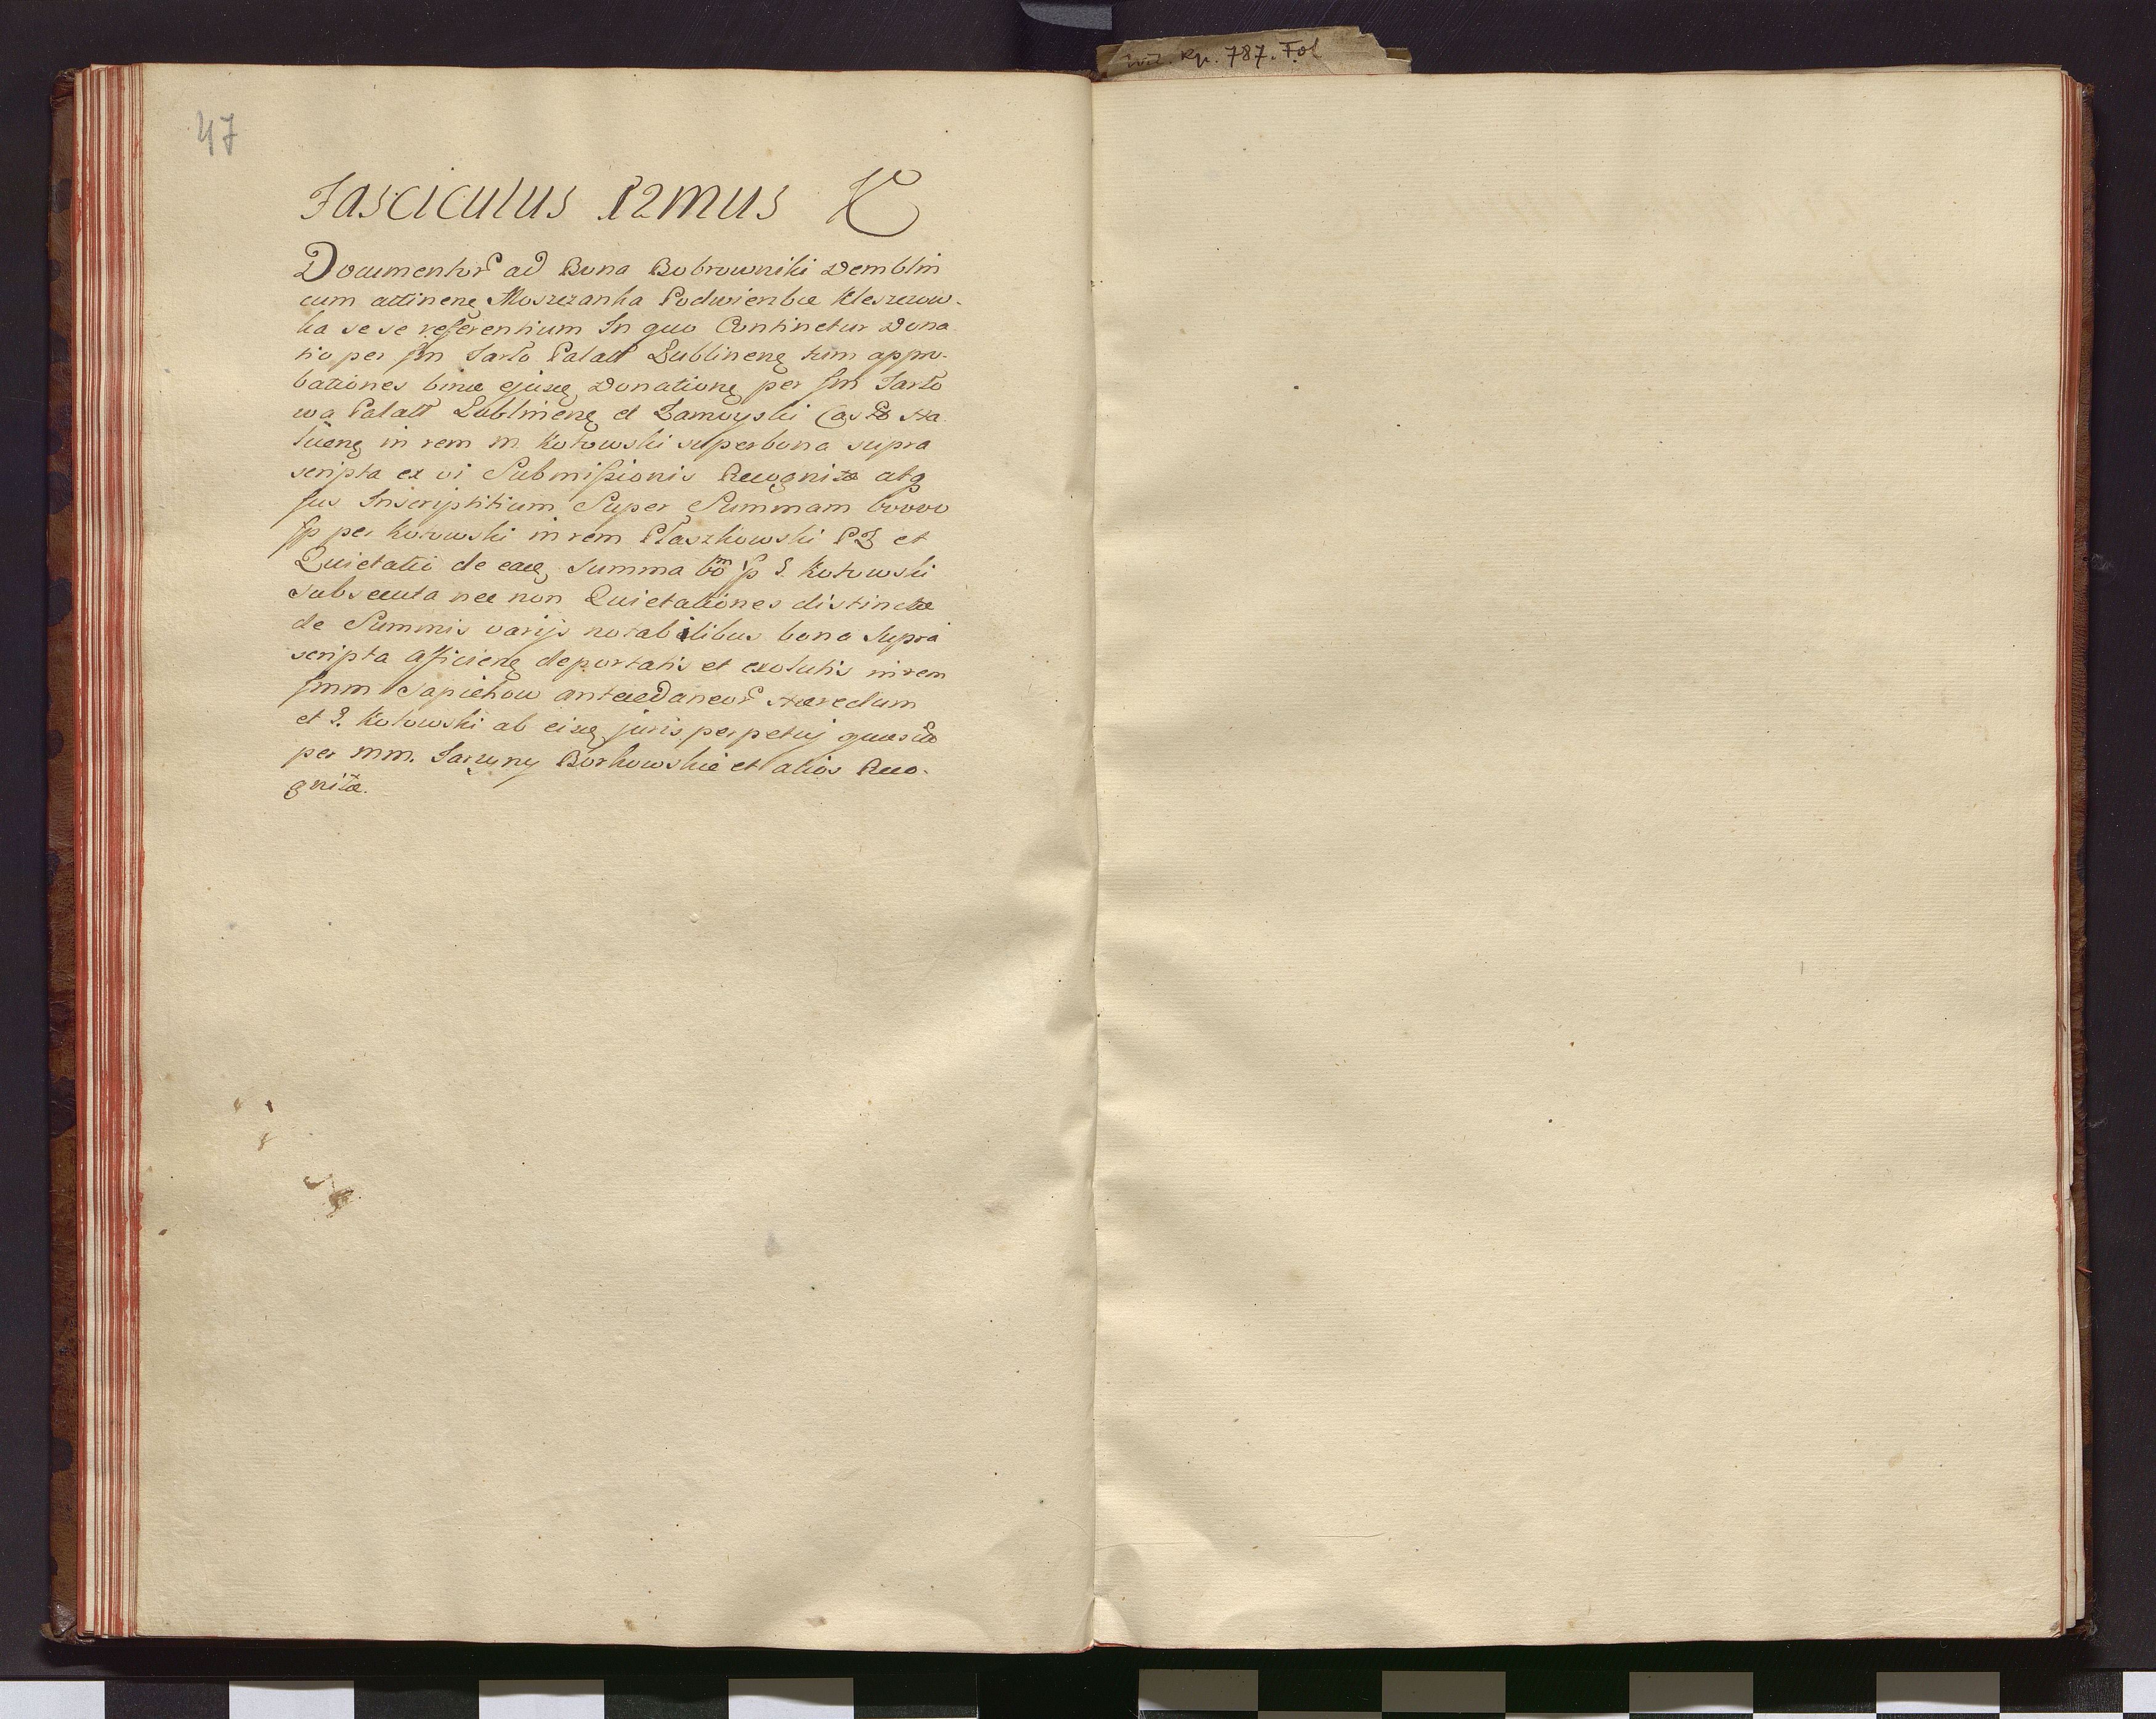 Wil. Rp. 787. Fol
47
Fasciculus 12mus K
Documentor ad Bona Bobrowniki Demblin
cum attinenę Moszczanka Podwierzbie Kleszczow-
ka se se referentium In quo Continetur Dona
tio per Jm Tarło Palatt Lublinenę tum appro-
bationes binæ ejusę Donationę per Jm Tarło
wa Palatt Lublinenę et Zamoyski Ha
in rem m. Kotowski super bona supra
scripta ex vi Submissionis Recognitæ atq
Jus Inscriptitium Super Summam 60000
fp per Kotowski in rem Płaszkowski PZ et
Quietatio de eaę Summa fp G. Kotowski
subsecuta nec non Quietationes distinctæ
de Summis varijs notabilibus bona Supra
scripta afficienę deportatis et exolutis in rem
Jmm Sapiehow antecedaneor Hæredum
et G. Kotowski ab eisę juris perpetuj
per mm. Jarzyny Borkowskie et alios Reco-
gnitæ.